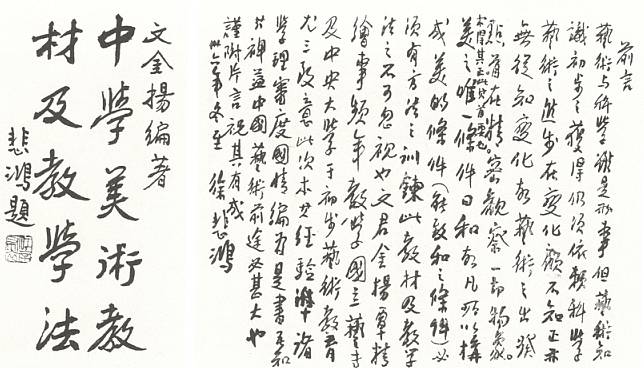 文金揚編著
中學美術教
材及教學法
悲鴻題
前言
藝術與科學雖是兩事但藝術知
識初步之獲得仍須依賴科學
藝術之進步在變化顧不知正亦
無從知變化故藝術之出發
點首在精密觀察一切物象。
美之唯一條件曰和故凡所以構
成美的條件(能致和之條件)必
須有方法之訓鍊此教材及教學
法之不可忽視也文君金揚覃精
繪事頻年教學國立藝專
及中央大學于初步藝術教育
尤三致意此次本其經驗諸
學理審度國情編為是書吾知
其裨益中國藝術前途必甚大也
謹附片言祝其有成
卅六年冬至 徐悲鴻